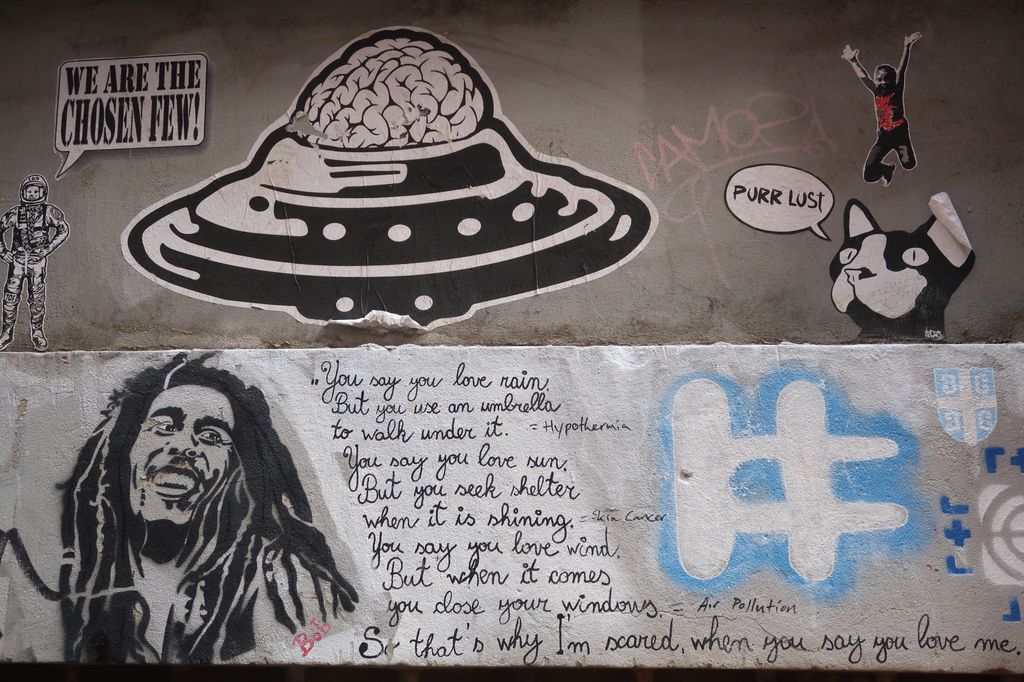 WE ARE THE
CHOSEN FEW!
PURR LUST
„You say you love rain.
But you use an umbrella
to walk under it. = Hypothermia
You say you love sun.
But you seek shelter
when it is shining. = Skin Cancer
You say you love wind.
But when it comes
you close your windows. = Air Pollution
So that's why I'm scared, when you say you love me.
Bob
#